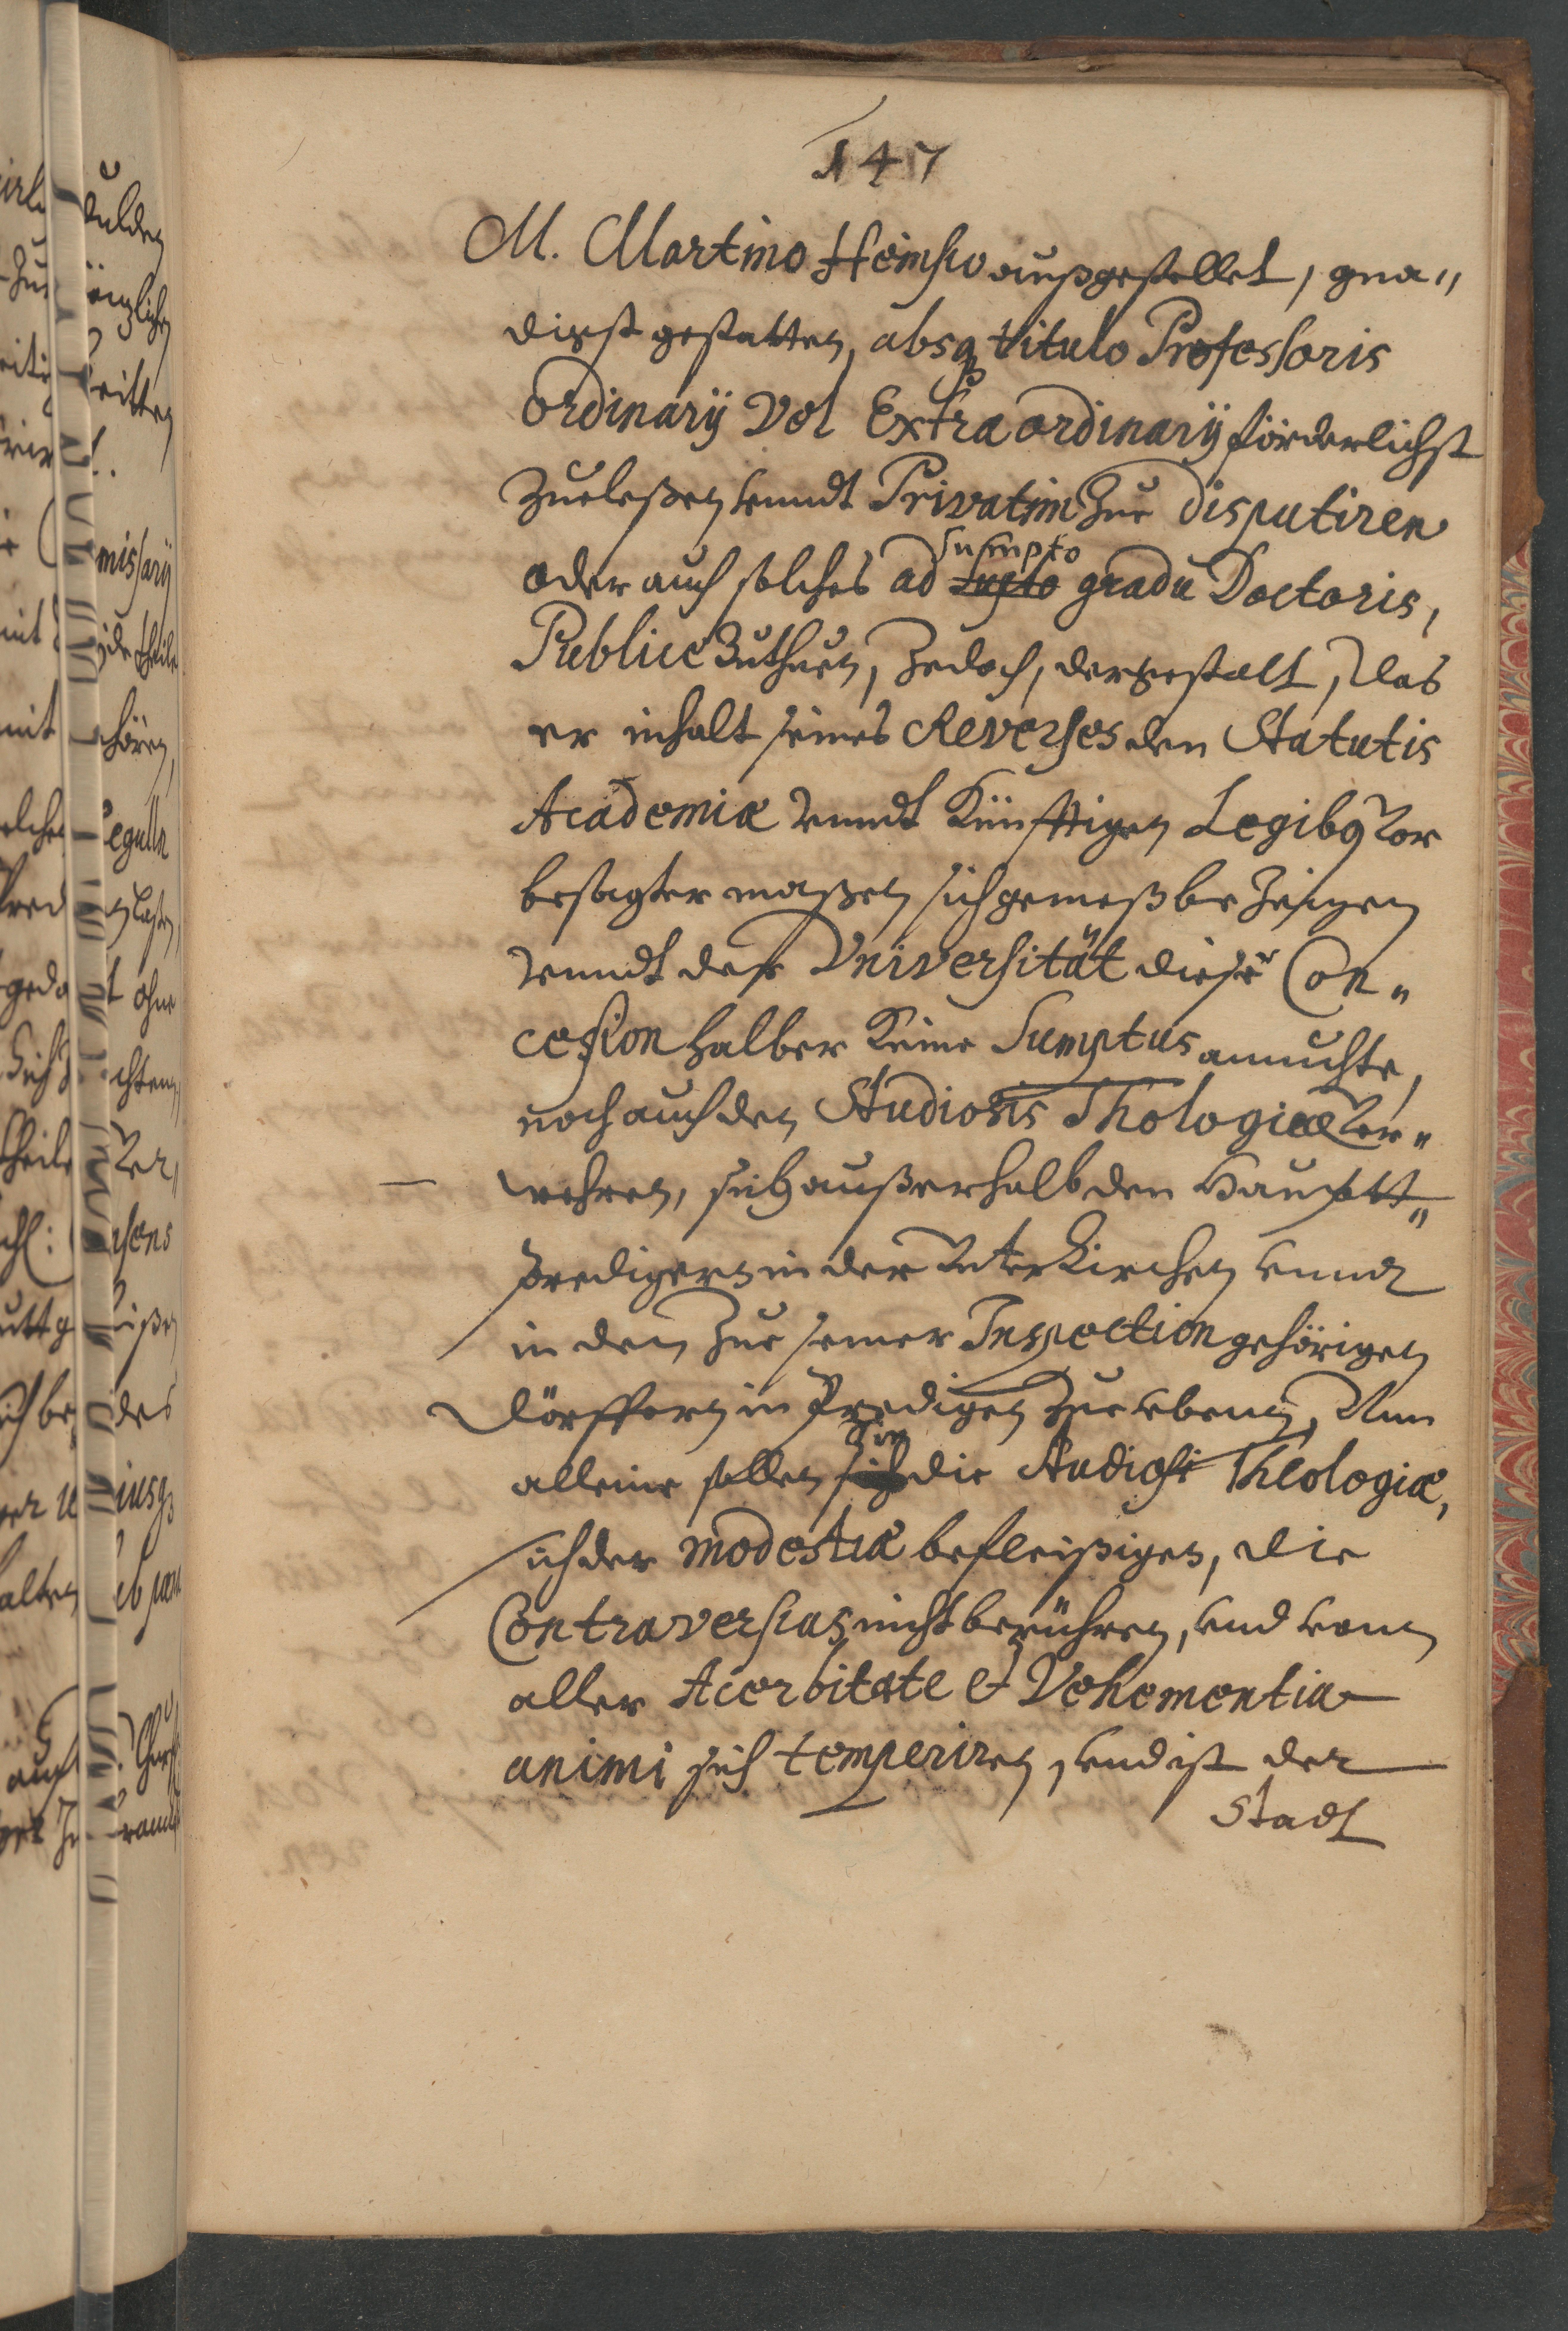 147
M. Martino Heinsio außgestellet, gnä„
digst gestatten, absq titulo Professoris
Ordinarÿ Vel Extraordinarÿ förderlichst
zue leßen vnndt Privatim zue disputiren
oder auch solches ad sumpto gradu Doctoris,
Publice zuthuen, Jedoch, dergestalt, das
er inhalt seines Reverses den Statutis
Academiæ vnndt Künfftigen Legibq vor
besagter maßen sich gemeß bezeigen
vnndt der Vniversität dieser Con„
cession halber Keine Sumptus anmuhte,
noch auch den Studiosis Thologiæ ver„
wehren, sich außerhalb den Haupt„
predigern in der Unter Kirchen vnndt
in den zue seiner Inspection gehörigen
Dörffern in Predigen zue vben, Nun
alleine sollen die Studiosi Theologiæ,
sich der modestiæ befleißigen, die
Contraversias nicht berühren, vnd vonn
aller Acerbitate et Vehementia
animi sich temperiren, vnd ist der
Stadt